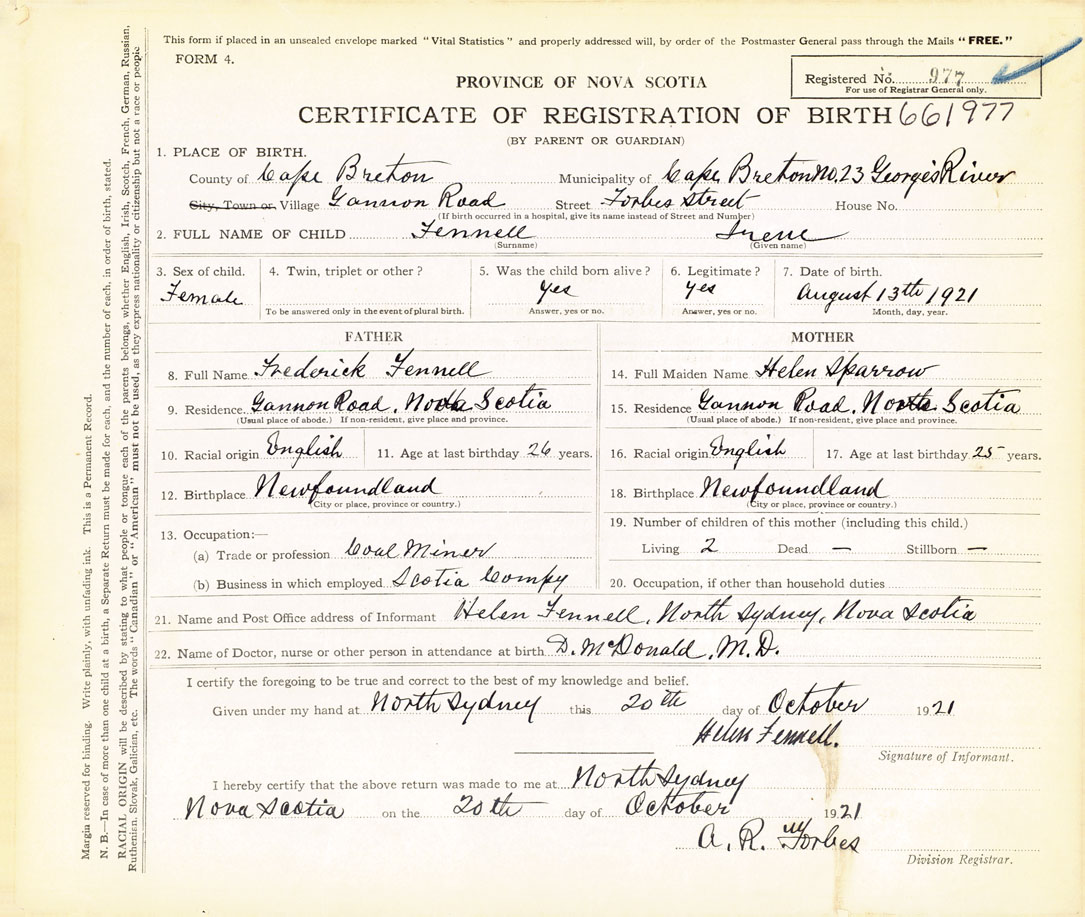 This form if placed in an unsealed envelope marked "Vital Statistics" and properly addressed will, by order of the Postmaster General pass through the Mails "FREE."
FORM 4.
Registered No. 977
For use of Registrar General only.
PROVINCE OF NOVA SCOTIA
CERTIFICATE OF REGISTRATION OF BIRTH 661977
(BY PARENT OR GUARDIAN)
1. PLACE OF BIRTH.
County of Cape Breton Municipality of Cape Breton No. 23 George's River
City, Town or Village Gannon Road Street Forbes Street House No.
(If birth occurred in a hospital, give its name instead of Street and Number)
2. FULL NAME OF CHILD Fennell Irene
(Surname) (Given name)
3. Sex of child. 4. Twin, triplet or other? 5. Was the child born alive? 6. Legitimate? 7. Date of birth.
Female Yes Yes August 13th 1921
To be answered only in the event of plural birth. Answer, yes or no. Answer, yes or no. Month, day, year.
FATHER
8. Full Name Frederick Fennell
9. Residence. Gannon Road, Nova Scotia
(Usual place of abode.) If non-resident, give place and province.
10. Racial origin English 11. Age at last birthday 26 years.
12. Birthplace Newfoundland
(City or place, province or country.)
13. Occupation:—
(a) Trade or profession Coal Miner
(b) Business in which employed Scotia Compy
MOTHER
14. Full Maiden Name Helen Sparrow
15. Residence Gannon Road, Nova Scotia
(Usual place of abode.) If non-resident, give place and province.
16. Racial origin English 17. Age at last birthday 25 years.
18. Birthplace Newfoundland
(City or place, province or country.)
19. Number of children of this mother (including this child.)
Living 2 Dead — Stillborn —
20. Occupation, if other than household duties
21. Name and Post Office address of Informant Helen Fennell, North Sydney, Nova Scotia
22. Name of Doctor, nurse or other person in attendance at birth D. McDonald, M.D.
I certify the foregoing to be true and correct to the best of my knowledge and belief.
Given under my hand at North Sydney this 20th day of October 1921
Helen Fennell.
Signature of Informant.
I hereby certify that the above return was made to me at North Sydney
Nova Scotia on the 20th day of October 1921
A. R. Forbes
Division Registrar.
Margin reserved for binding. Write plainly, with unfading ink. This is a Permanent Record.
N. B.—In case of more than one child at a birth, a Separate Return must be made for each, and the number of each, in order of birth, stated.
RACIAL ORIGIN will be described by stating to what people or tongue each of the parents belongs, whether English, Irish, Scotch, French, German, Russian,
Ruthenian, Slovak, Galician, etc. The words "Canadian" or "American" must not be used, as they express nationality or citizenship but not a race or people